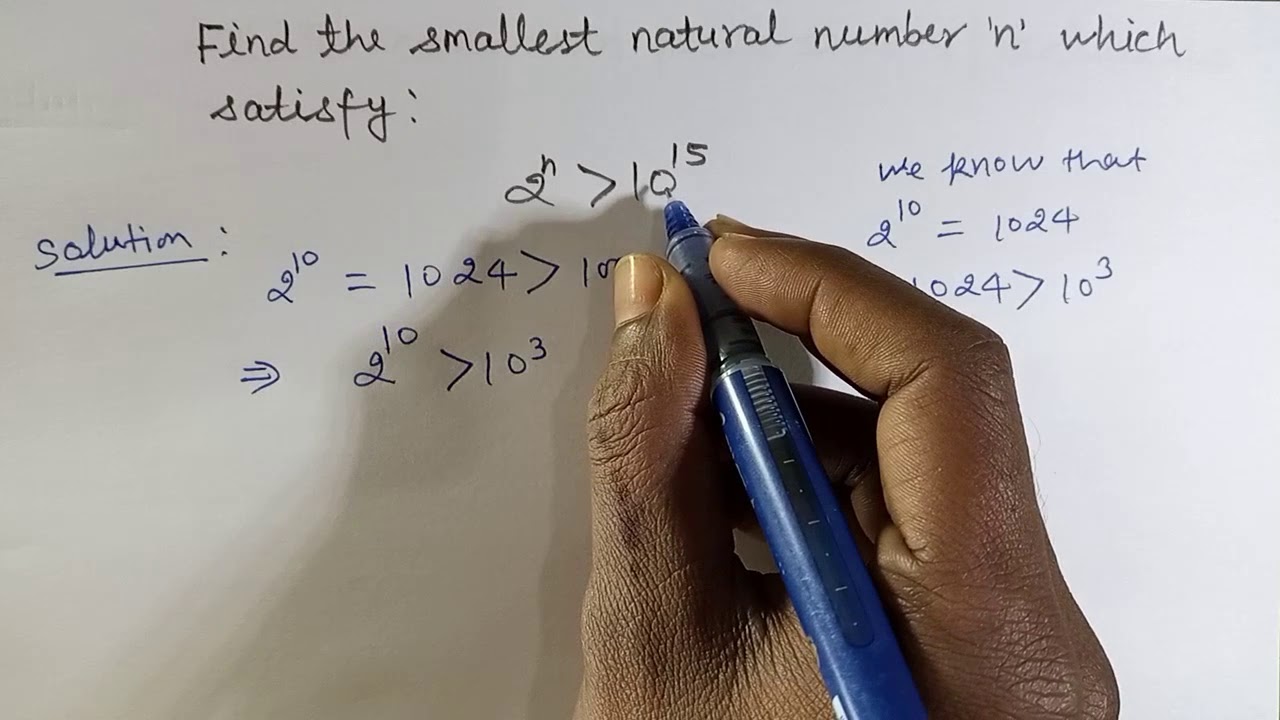 Find the smallest natural number 'n' which
satisfy:
2ⁿ > 10¹⁵
we know that
2¹⁰ = 1024
1024 > 10³
Solution:
2¹⁰ = 1024 > 10
⇒ 2¹⁰ > 10³